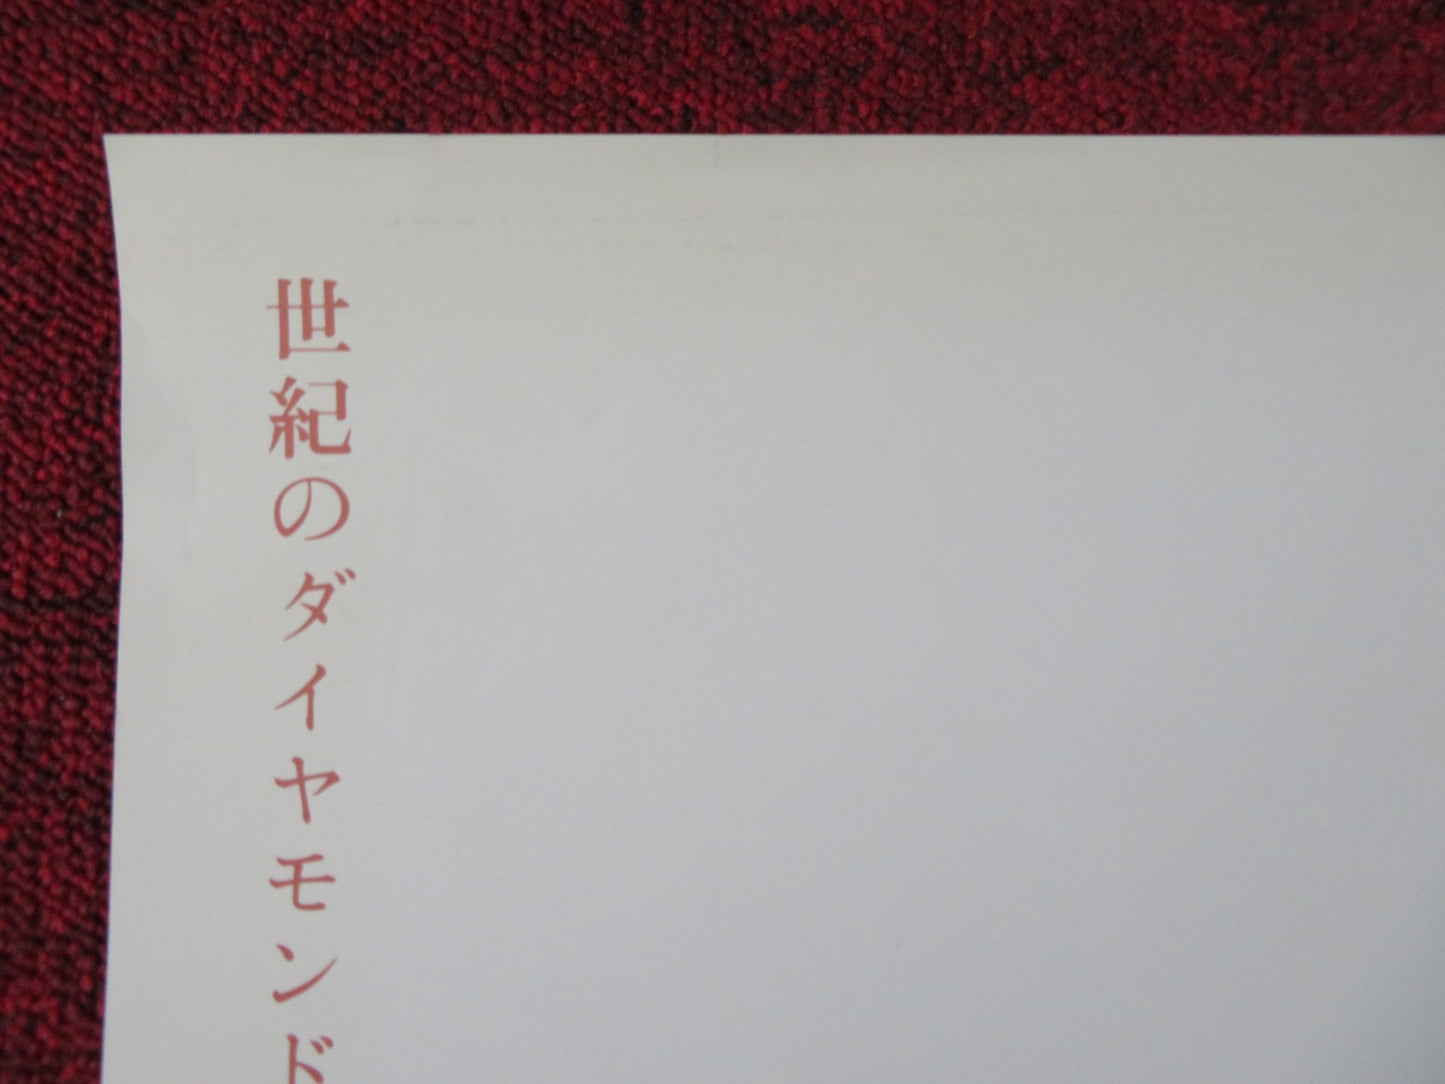 世紀のダイヤモンド